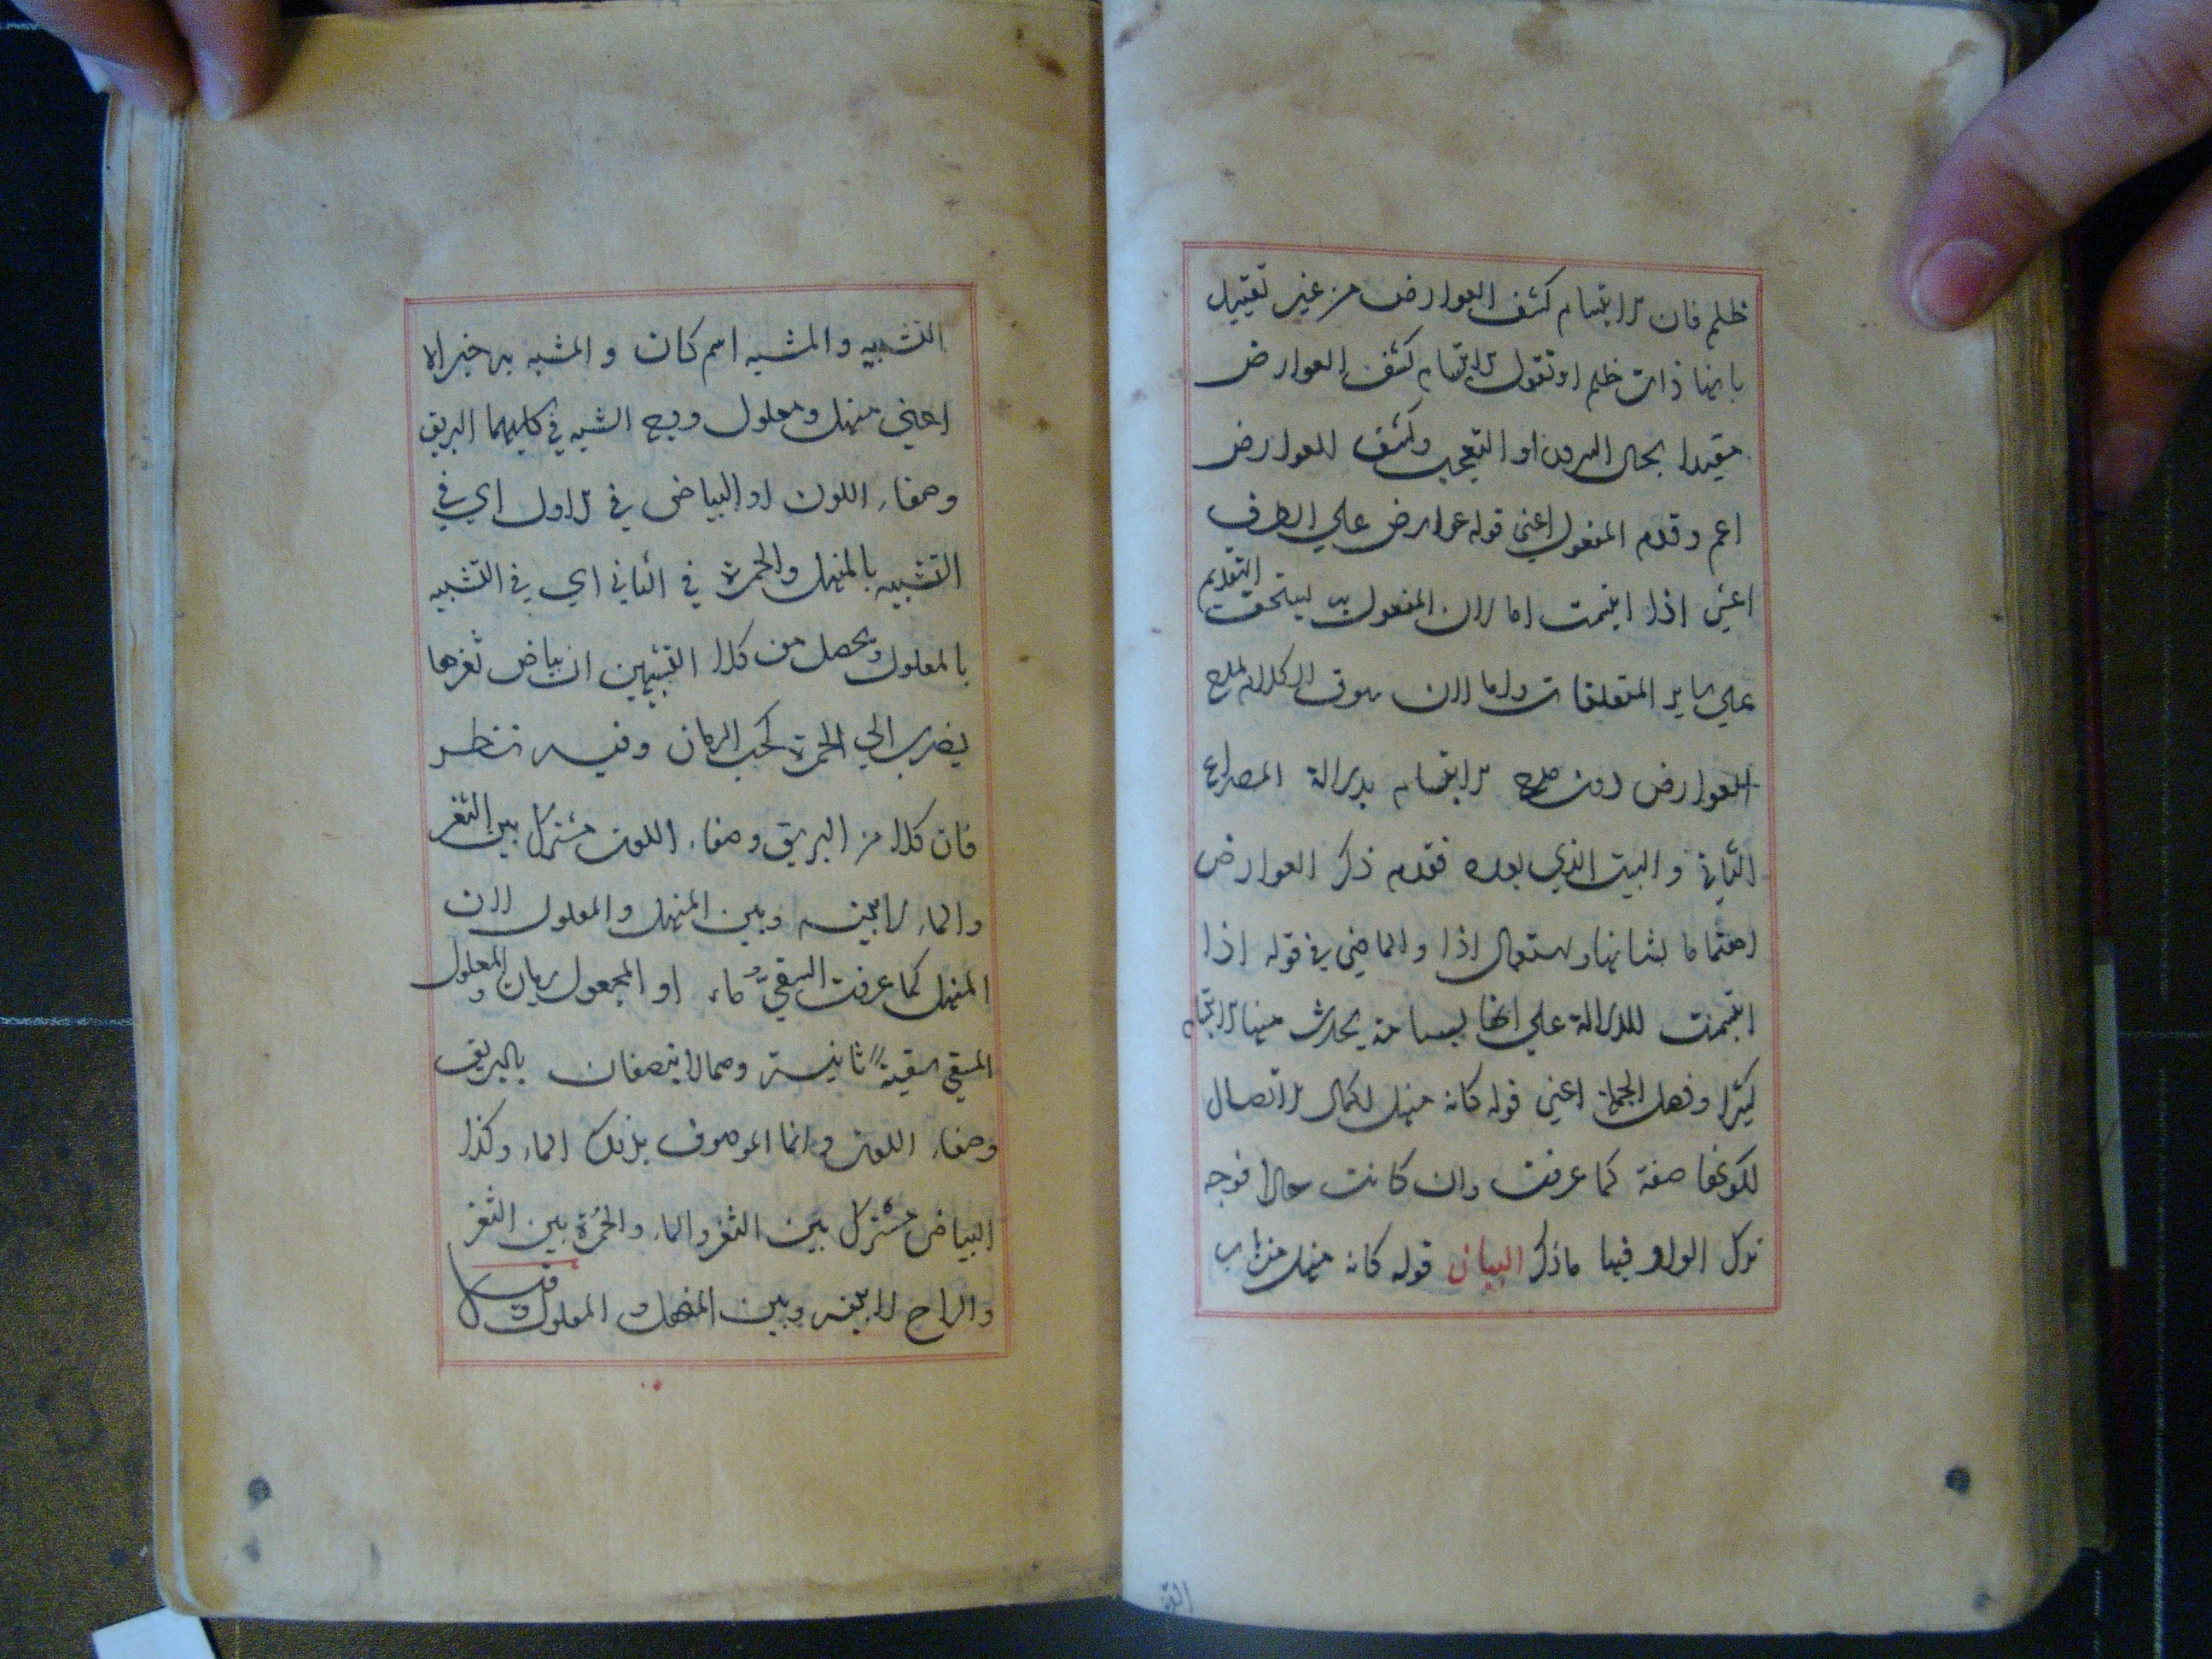 ظلم فان الابتسام كشف العوارض من غير تقييد
بانها ذات ظلم او تقول الابتسام كشف العوارض
مقيدا بحال السرور او التعجب وكشف العوارض
اعم وقدم المفعول اعني قوله عوارض علي الظرف
اعني اذا ابتسمت اما لان المفعول به يستحق التقديم
علي ساير المتعلقات واما لان سوق الكلام لمدح
العوارض دون مدح الابتسام بدلالة المصراع
الثاني والبيت الذي بعده فقدم ذكر العوارض
اهتماما بشانها واستعمال اذا والماضي في قوله اذا
ابتسمت للدلالة علي انها بسامة يحدث منها الابتسام
كثيرا وفصل الجملة اعني قوله كانه منهل لكمال الاتصال
لكونها صفة كما عرفت وان كانت حالا فوجه
ترك الواو فيها ما ذكر البيان قوله كانه منهل من باب
التشبيه والمشبه اسم كان والمشبه به خبراه
اعني منهل ومعلول ووجه الشبه في كليهما البريق
وصفاء اللون او البياض في الاول اي في
التشبيه بالمنهل والحمرة في الثاني اي في التشبيه
بالمعلول ويحصل من كلا التشبيهين ان بياض ثغرها
يضرب الي الحمرة كحب الرمان وفيه نظر
فان كلا من البريق وصفاء اللون مشترك بين الثغر
والماء لا بينه وبين المنهل والمعلول لان
المنهل كما عرفت السقي ماء او المجعول ريان والمعلول
المسقي سقية ثانية وهما لا يتصفان بالبريق
وصفاء اللون وانما الموصوف بذلك الماء وكذا
البياض مشترك بين الثغر والماء والحمرة بين الثغر
والراح لا بينه وبين المنهل والمعلول